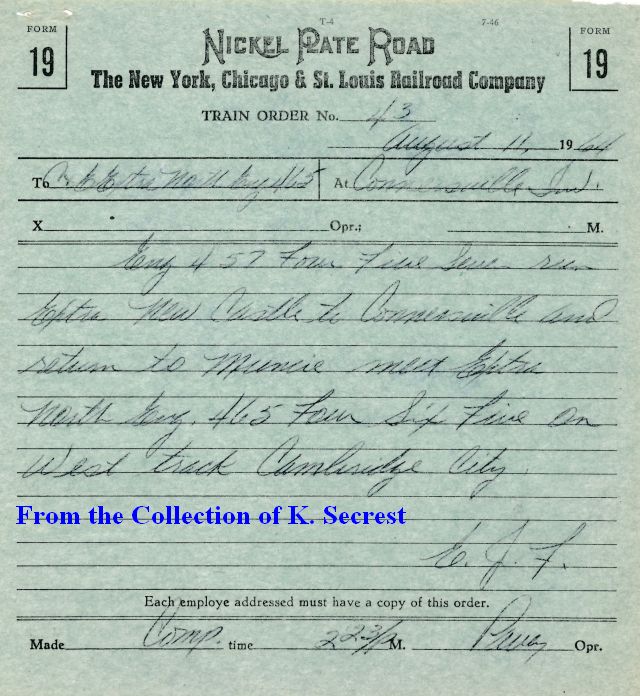 T-4 7-46
FORM 19
NICKEL PLATE ROAD
FORM 19
The New York, Chicago & St. Louis Railroad Company
TRAIN ORDER No. 43
August 11, 1964
To C & E Extra North Eng 465 At Connersville Ind.
X Opr.; M.
Eng 457 Four Five Seven run
Extra New Castle to Connersville and
return to Muncie meet Extra
North Eng. 465 Four Six Five on
West track Cambridge City.
From the Collection of K. Secrest
E. J. F.
Each employe addressed must have a copy of this order.
Made Comp. time M. Opr.